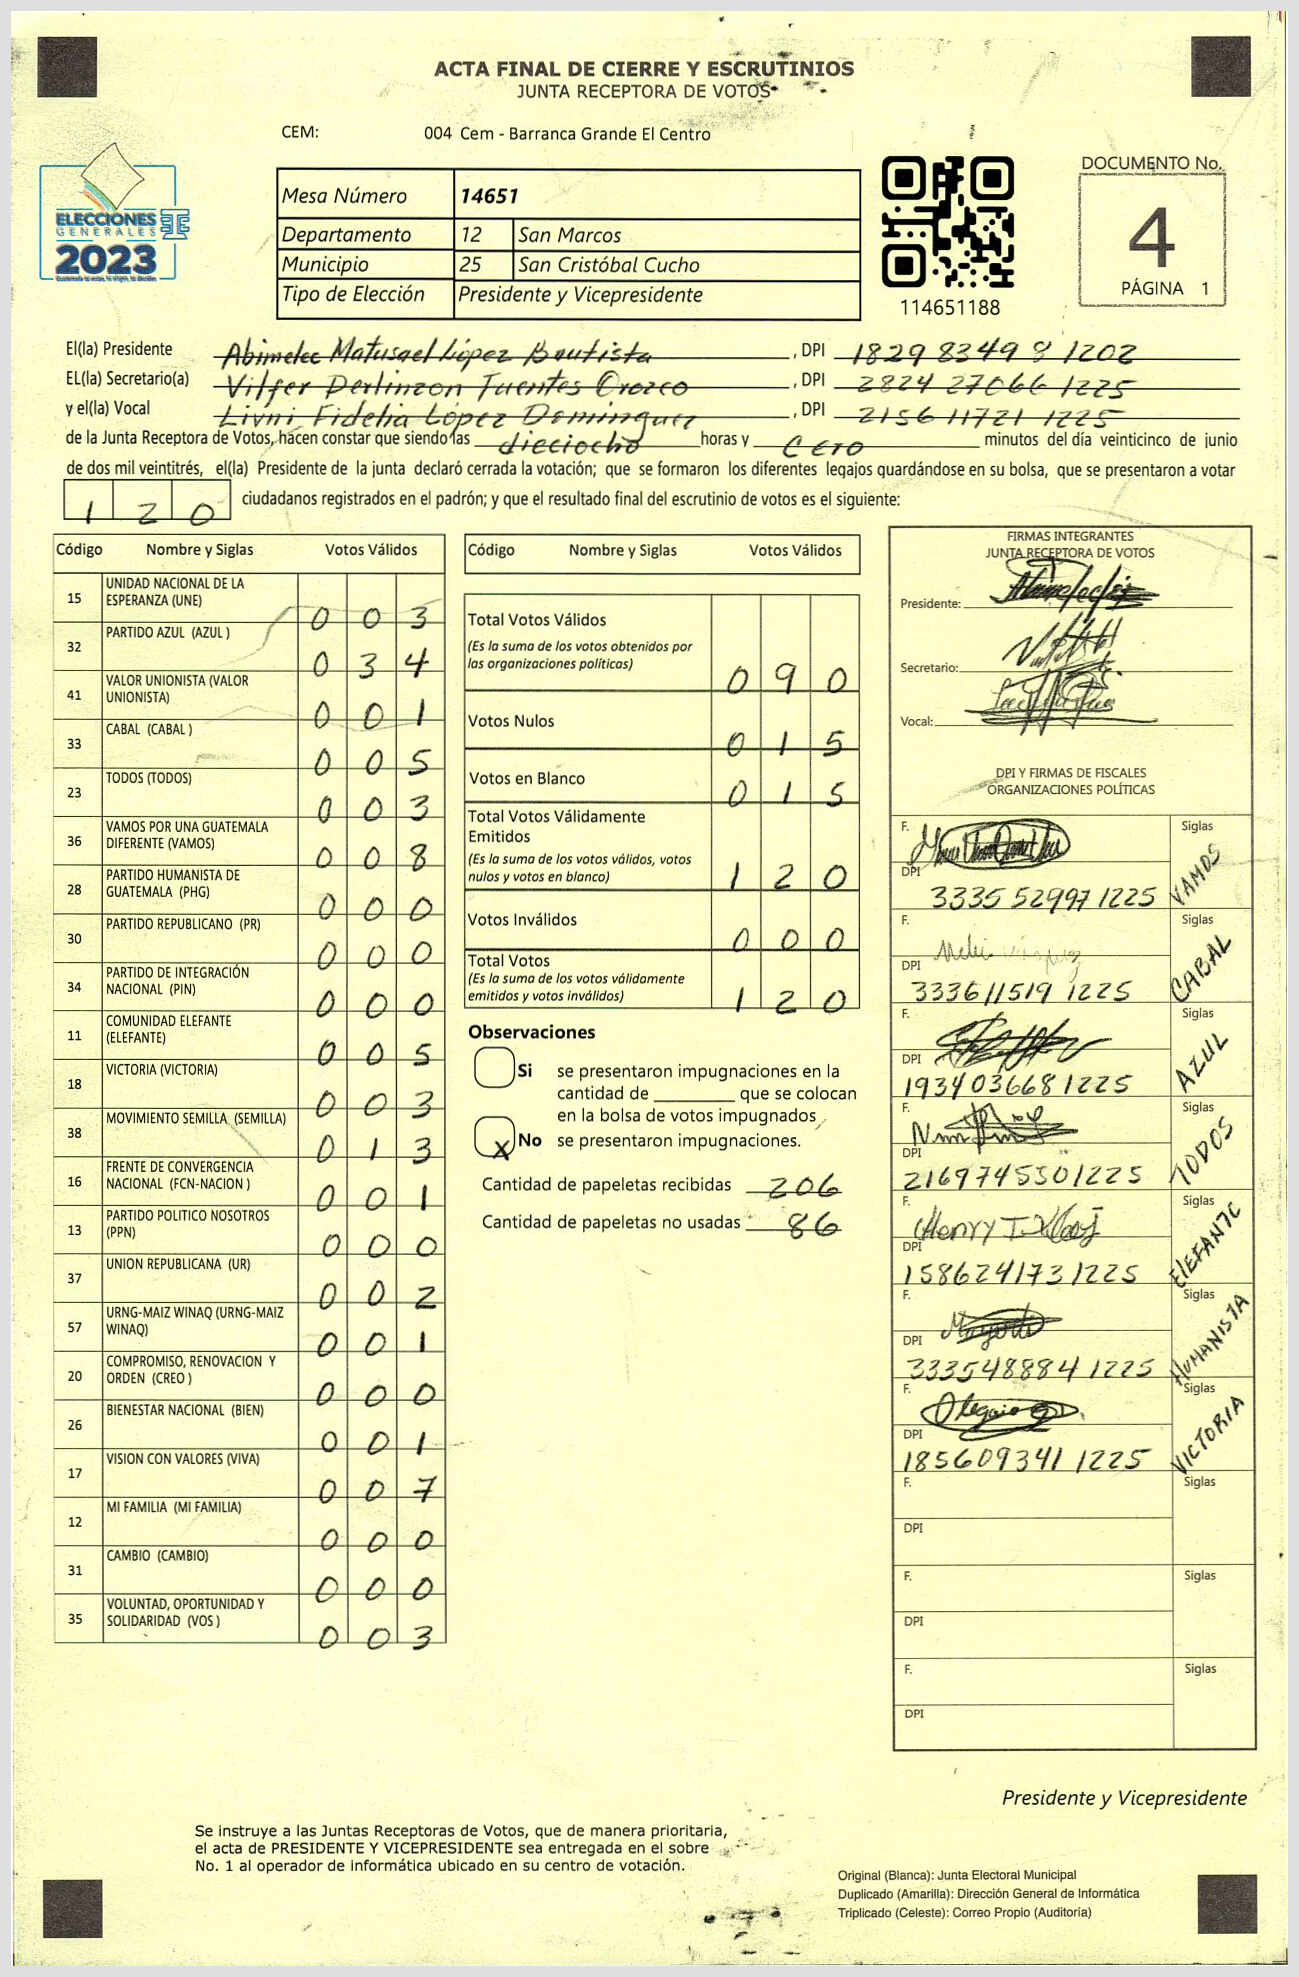 ACTA FINAL DE CIERRE Y ESCRUTINIOS
JUNTA RECEPTORA DE VOTOS
CEM: 004 Cem - Barranca Grande El Centro
ELECCIONES
GENERALES
2023
Mesa Número 14651
Departamento 12 San Marcos
Municipio 25 San Cristóbal Cucho
Tipo de Elección Presidente y Vicepresidente
114651188
DOCUMENTO No.
4
PÁGINA 1
El(la) Presidente Abimelec Matusael López Bautista, DPI 1829 83498 1202
EL(la) Secretario(a) Vilfer Derlinzon Fuentes Orozco, DPI 2824 27066 1225
y el(la) Vocal Livni Fidelia López Dominguez, DPI 2156 11721 1225
de la Junta Receptora de Votos, hacen constar que siendo las dieciocho horas y cero minutos del día veinticinco de junio
de dos mil veintitrés, el(la) Presidente de la junta declaró cerrada la votación; que se formaron los diferentes legajos quardándose en su bolsa, que se presentaron a votar
1 2 0 ciudadanos registrados en el padrón; y que el resultado final del escrutinio de votos es el siguiente:
Código Nombre y Siglas Votos Válidos
15 UNIDAD NACIONAL DE LA ESPERANZA (UNE) 0 0 3
32 PARTIDO AZUL (AZUL ) 0 3 4
41 VALOR UNIONISTA (VALOR UNIONISTA) 0 0 1
33 CABAL (CABAL ) 0 0 5
23 TODOS (TODOS) 0 0 3
36 VAMOS POR UNA GUATEMALA DIFERENTE (VAMOS) 0 0 8
28 PARTIDO HUMANISTA DE GUATEMALA (PHG) 0 0 0
30 PARTIDO REPUBLICANO (PR) 0 0 0
34 PARTIDO DE INTEGRACIÓN NACIONAL (PIN) 0 0 0
11 COMUNIDAD ELEFANTE (ELEFANTE) 0 0 5
18 VICTORIA (VICTORIA) 0 0 3
38 MOVIMIENTO SEMILLA (SEMILLA) 0 1 3
16 FRENTE DE CONVERGENCIA NACIONAL (FCN-NACION ) 0 0 1
13 PARTIDO POLITICO NOSOTROS (PPN) 0 0 0
37 UNION REPUBLICANA (UR) 0 0 2
57 URNG-MAIZ WINAQ (URNG-MAIZ WINAQ) 0 0 1
20 COMPROMISO, RENOVACION Y ORDEN (CREO ) 0 0 0
26 BIENESTAR NACIONAL (BIEN) 0 0 1
17 VISION CON VALORES (VIVA) 0 0 7
12 MI FAMILIA (MI FAMILIA) 0 0 0
31 CAMBIO (CAMBIO) 0 0 0
35 VOLUNTAD, OPORTUNIDAD Y SOLIDARIDAD (VOS ) 0 0 3
Código Nombre y Siglas Votos Válidos
Total Votos Válidos
(Es la suma de los votos obtenidos por
las organizaciones políticas) 0 9 0
Votos Nulos 0 1 5
Votos en Blanco 0 1 5
Total Votos Válidamente
Emitidos
(Es la suma de los votos válidos, votos
nulos y votos en blanco) 1 2 0
Votos Inválidos 0 0 0
Total Votos
(Es la suma de los votos válidamente
emitidos y votos inválidos) 1 2 0
Observaciones
Si se presentaron impugnaciones en la
cantidad de ________ que se colocan
en la bolsa de votos impugnados
x No se presentaron impugnaciones.
Cantidad de papeletas recibidas 206
Cantidad de papeletas no usadas 86
FIRMAS INTEGRANTES
JUNTA RECEPTORA DE VOTOS
Presidente:
Secretario:
Vocal:
DPI Y FIRMAS DE FISCALES
ORGANIZACIONES POLÍTICAS
F. Siglas
DPI 3335 52997 1225 VAMOS
F. Siglas
DPI 333611519 1225 CABAL
F. Siglas
DPI 193403668 1225 AZUL
F. Siglas
DPI 216974550 1225 TODOS
F. Henry Siglas
DPI 158624173 1225 ElEFANTE
F. Siglas
DPI 333548884 1225 HUMANISTA
F. Siglas
DPI 185609341 1225 VICTORIA
F. Siglas
DPI
F. Siglas
DPI
F. Siglas
DPI
Presidente y Vicepresidente
Se instruye a las Juntas Receptoras de Votos, que de manera prioritaria,
el acta de PRESIDENTE Y VICEPRESIDENTE sea entregada en el sobre
No. 1 al operador de informática ubicado en su centro de votación.
Original (Blanca): Junta Electoral Municipal
Duplicado (Amarilla): Dirección General de Informática
Triplicado (Celeste): Correo Propio (Auditoría)